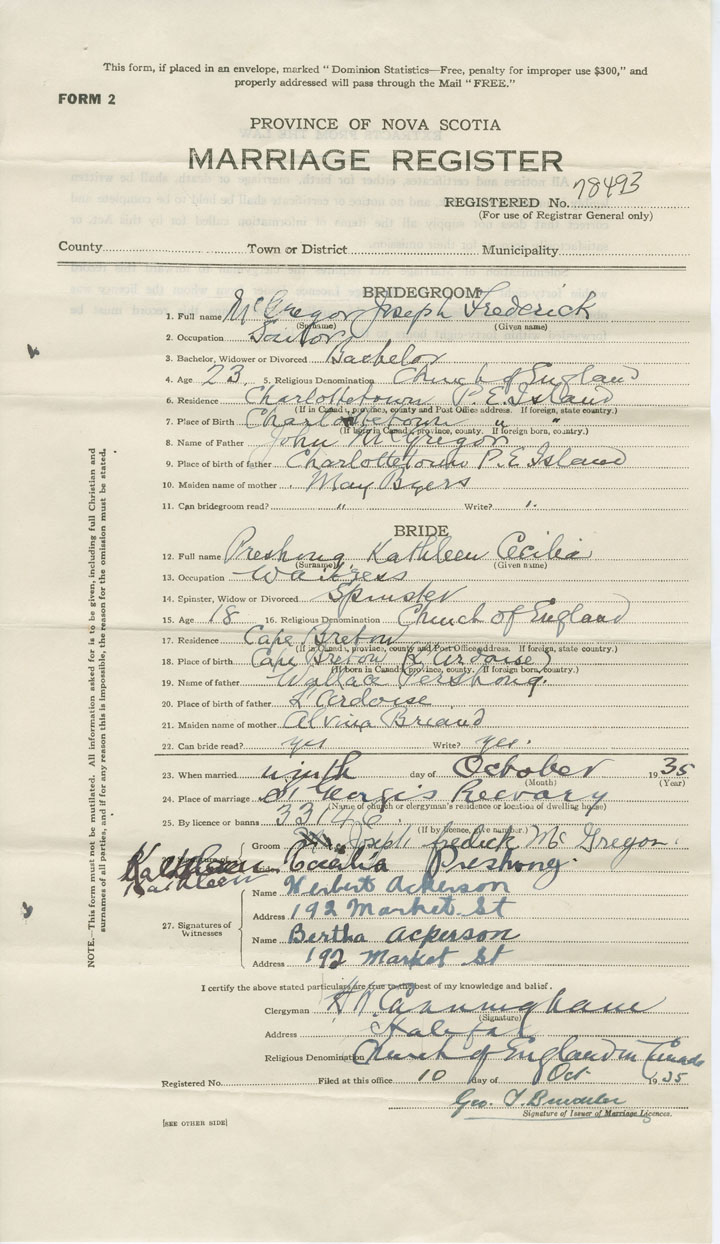 This form, if placed in an envelope, marked "Dominion Statistics—Free, penalty for improper use $300," and
properly addressed will pass through the Mail "FREE."
FORM 2
PROVINCE OF NOVA SCOTIA
MARRIAGE REGISTER
REGISTERED No. 78493
(For use of Registrar General only)
County Town or District Municipality
BRIDEGROOM
1. Full name McGregor Joseph Frederick
(Surname) (Given name)
2. Occupation Sailor
3. Bachelor, Widower or Divorced Bachelor
4. Age 23 5. Religious Denomination Church of England
6. Residence Charlottetown P.E. Island
(If in Canada, province, county and Post Office address. If foreign, state country.)
7. Place of Birth Charlottetown " "
(If born in Canada, province, county. If foreign born, country.)
8. Name of Father John McGregor
9. Place of birth of father Charlottetown P.E Island
10. Maiden name of mother May Byers
11. Can bridegroom read? " Write? "
BRIDE
12. Full name Preshong Kathleen Cecilia
(Surname) (Given name)
13. Occupation Waitress
14. Spinster, Widow or Divorced Spinster
15. Age 18 16. Religious Denomination Church of England
17. Residence Cape Breton
(If in Canada, province, county and Post Office address. If foreign, state country.)
18. Place of birth Cape Breton (L'Ardoise)
(If born in Canada, province, county. If foreign born, country.)
19. Name of father Wallace Pershong.
20. Place of birth of father L'Ardoise
21. Maiden name of mother Alvina Briand
22. Can bride read? yes Write? yes.
23. When married ninth day of October 1935
(Month) (Year)
24. Place of marriage St Georges Rectory
(Name of church or clergyman's residence or location of dwelling house)
25. By licence or banns 33146.
(If by licence, give number.)
Groom Joseph fredick McGregor.
Kathleen Bride Cecilia Preshong.
Kathleen
27. Signatures of Witnesses
Name Herbert Ackerson
Address 192 Market St
Name Bertha Acperson
Address 192 Market St
I certify the above stated particulars are true to the best of my knowledge and belief.
Clergyman Cunningham
(Signature)
Address Halifax
Religious Denomination Church of England in Canada
Registered No. Filed at this office 10 day of Oct 1935
Geo. T.
Signature of Issuer of Marriage Licences.
[SEE OTHER SIDE]
NOTE.—This form must not be mutilated. All information asked for is to be given, including full Christian and
surnames of all parties, and if for any reason this is impossible, the reason for the omission must be stated.